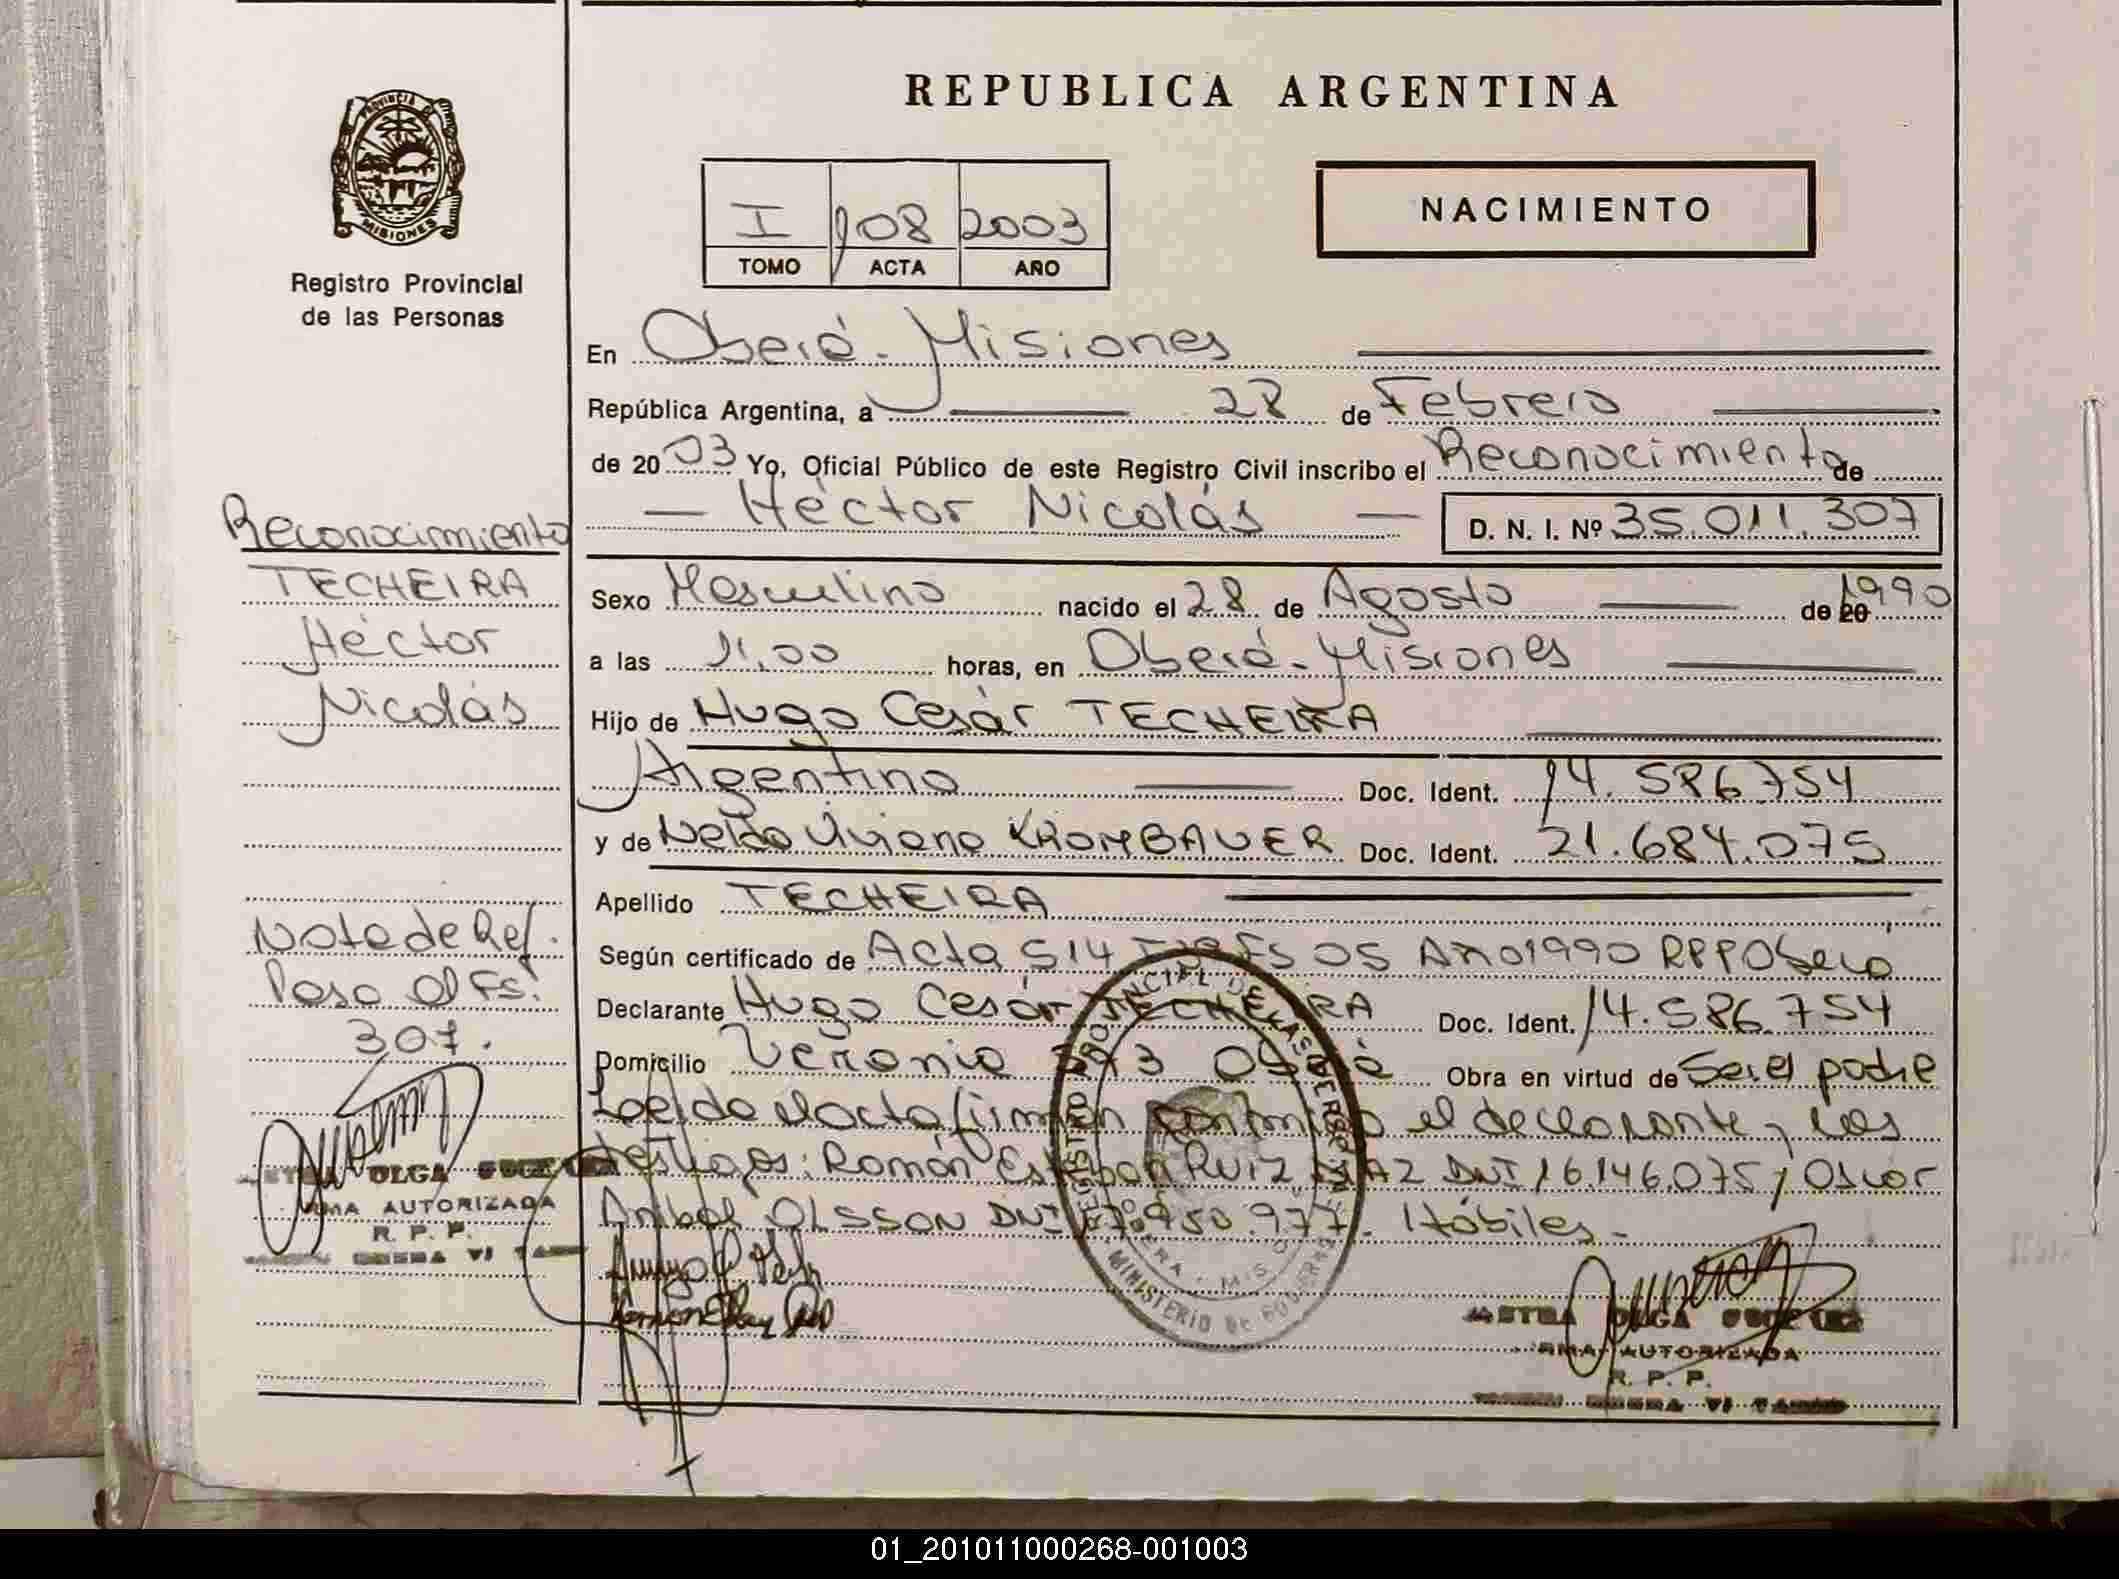 REPUBLICA ARGENTINA
PROVINCIA DE MISIONES
Registro Provincial
de las Personas
I 108 2003
TOMO ACTA AÑO
NACIMIENTO
En Oberá - Misiones
República Argentina, a 28 de Febrero
de 2003 Yo, Oficial Público de este Registro Civil inscribo el Reconocimiento de
Héctor Nicolás D. N. I. Nº 35.011.307
Sexo Masculino nacido el 28 de Agosto de 20 1990
a las 11,00 horas, en Oberá - Misiones
Hijo de Hugo Cesár TECHEIRA
Argentino Doc. Ident. 14.586.754
y de Nelda Viviana KROMBAUER Doc. Ident. 21.684.075
Apellido TECHEIRA
Según certificado de Acta 514 Fs 05 Año 1990 RPP Oberá
Declarante Hugo Cesár TECHEIRA Doc. Ident. 14.586.754
Domicilio Obra en virtud de Ser el padre
Leida el acta firman conmigo el declarante y los
testigos: Román Esteban RUIZ DIAZ DNI 16.146.075 y Oscar
Anibal OLSSON DNI 950.977. Hábiles.
Reconocimiento
TECHEIRA
Héctor
Nicolás
Nota de Ref.
Pasa al Fs.
307.
OLGA
AUTORIZADA
R. P. P.
REGISTRO PROVINCIAL DE LAS PERSONAS
MINISTERIO DE GOBIERNO
OLGA
AUTORIZADA
R. P. P.
01_201011000268-001003